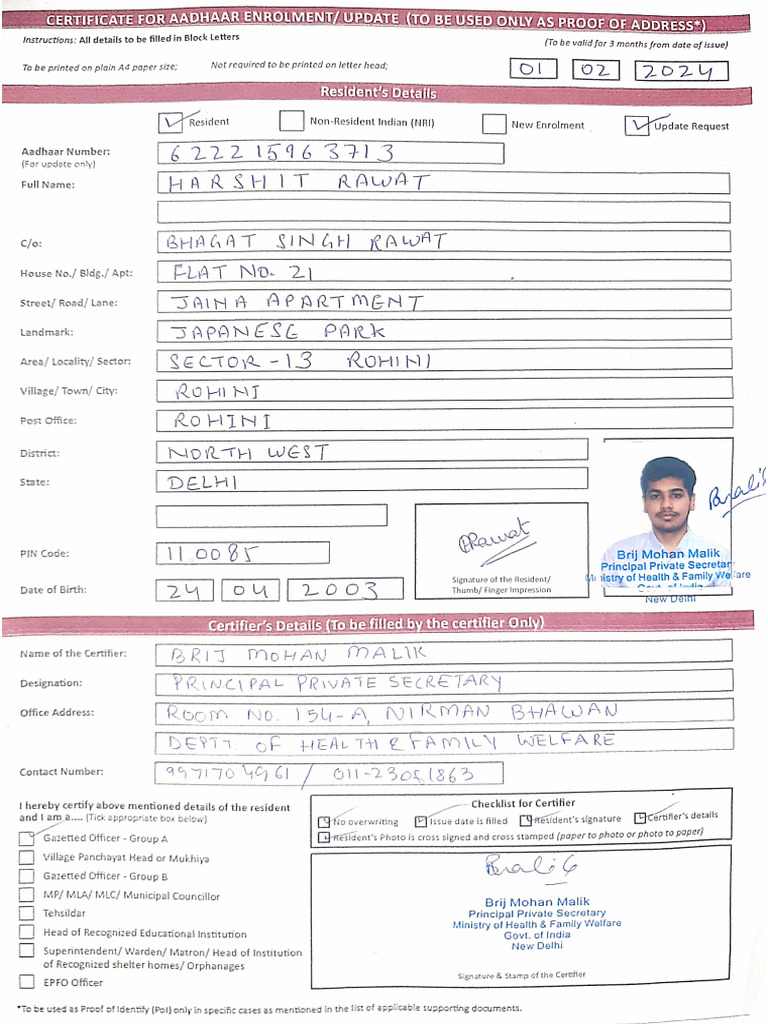 CERTIFICATE FOR AADHAAR ENROLMENT/ UPDATE (TO BE USED ONLY AS PROOF OF ADDRESS*)
Instructions: All details to be filled in Block Letters
(To be valid for 3 months from date of issue)
To be printed on plain A4 paper size; Not required to be printed on letter head;
01 02 2024
Resident's Details
Resident Non-Resident Indian (NRI) New Enrolment Update Request
Aadhaar Number: 622215963713
(For update only)
Full Name: HARSHIT RAWAT
C/o: BHAGAT SINGH RAWAT
House No./ Bldg./ Apt: FLAT NO. 21
Street/ Road/ Lane: JAINA APARTMENT
Landmark: JAPANESE PARK
Area/ Locality/ Sector: SECTOR -13 ROHINI
Village/ Town/ City: ROHINI
Post Office: ROHINI
District: NORTH WEST
State: DELHI
PIN Code: 110085
HRawat
Signature of the Resident/
Thumb/ Finger Impression
Brij Mohan Malik
Principal Private Secretary
Ministry of Health & Family Welfare
Govt. of India
New Delhi
Date of Birth: 24 04 2003
Certifier's Details (To be filled by the certifier Only)
Name of the Certifier: BRIJ MOHAN MALIK
Designation: PRINCIPAL PRIVATE SECRETARY
Office Address: ROOM NO. 154-A, NIRMAN BHAWAN
DEPTT OF HEALTH & FAMILY WELFARE
Contact Number: 9971704961 / 011-23061863
I hereby certify above mentioned details of the resident
and I am a.... (Tick appropriate box below)
Gazetted Officer - Group A
Village Panchayat Head or Mukhiya
Gazetted Officer - Group B
MP/ MLA/ MLC/ Municipal Councillor
Tehsildar
Head of Recognized Educational Institution
Superintendent/ Warden/ Matron/ Head of Institution
of Recognized shelter homes/ Orphanages
EPFO Officer
Checklist for Certifier
No overwriting Issue date is filled Resident's signature Certifier's details
Resident's Photo is cross signed and cross stamped (paper to photo or photo to paper)
Brij Mohan Malik
Principal Private Secretary
Ministry of Health & Family Welfare
Govt. of India
New Delhi
Signature & Stamp of the Certifier
*To be used as Proof of Identity (PoI) only in specific cases as mentioned in the list of applicable supporting documents.